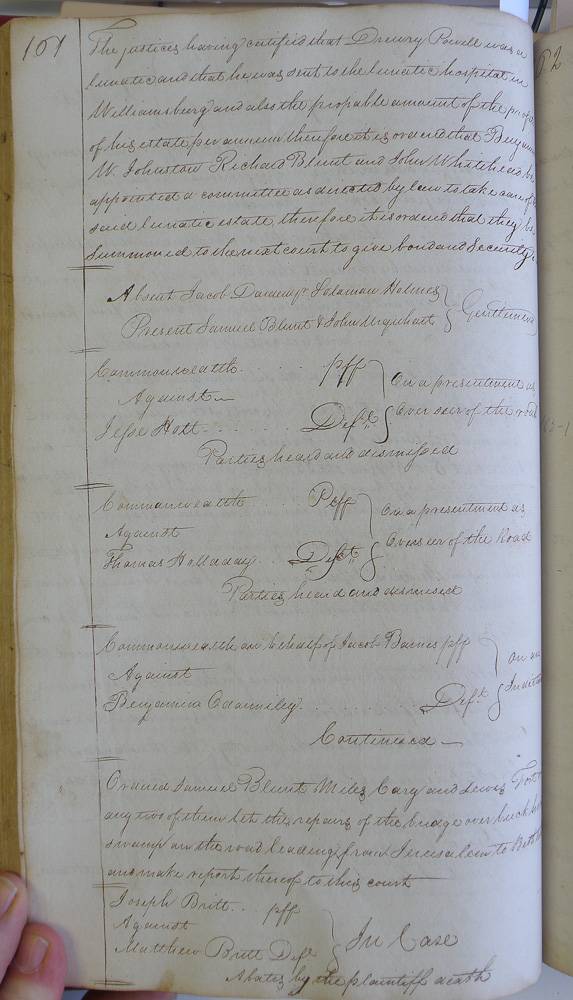 101
The justices having certified that Drewry Powell was a
lunatic and that he was sent to the lunatic hospital in
Williamsburg and also the propable amount of the
of his estate per annum therefore it is ordered that
W. Johnston Richard Blunt and John Whitehead be
appointed a committee as directed by law to take care of
said lunatic estate therefore it is ordered that they be
Summoned to the next court to give bond and Security
Absent Jacob Darden jr Soloman Holmes
Present Samuel Blunt & John Urquhart } Gentlemen
Commonwealth . . . pff
Against
Jesse Holt . . . Deft } On a presentment as
Over seer of the road
Parties heard and dismissed
Commonwealth . . . Plff
Against
Thomas Holladay . . Deft } On a presentment as
Overseer of the Road
Parties heard and dismissed
Commonwealth on behalf of Jacob Barnes pff
Against
Benjamin . . . Deft } On an
Continued
Ordered Samuel Blunt Miles Cary and Lewis
any two of them let the repairs of the bridge over
swamp on the road leading from Jerusalem to
and make report thereof to this court
Joseph Britt . . pff
Against
Matthew Britt Deft } In Case
Abates by the plaintiff death
52